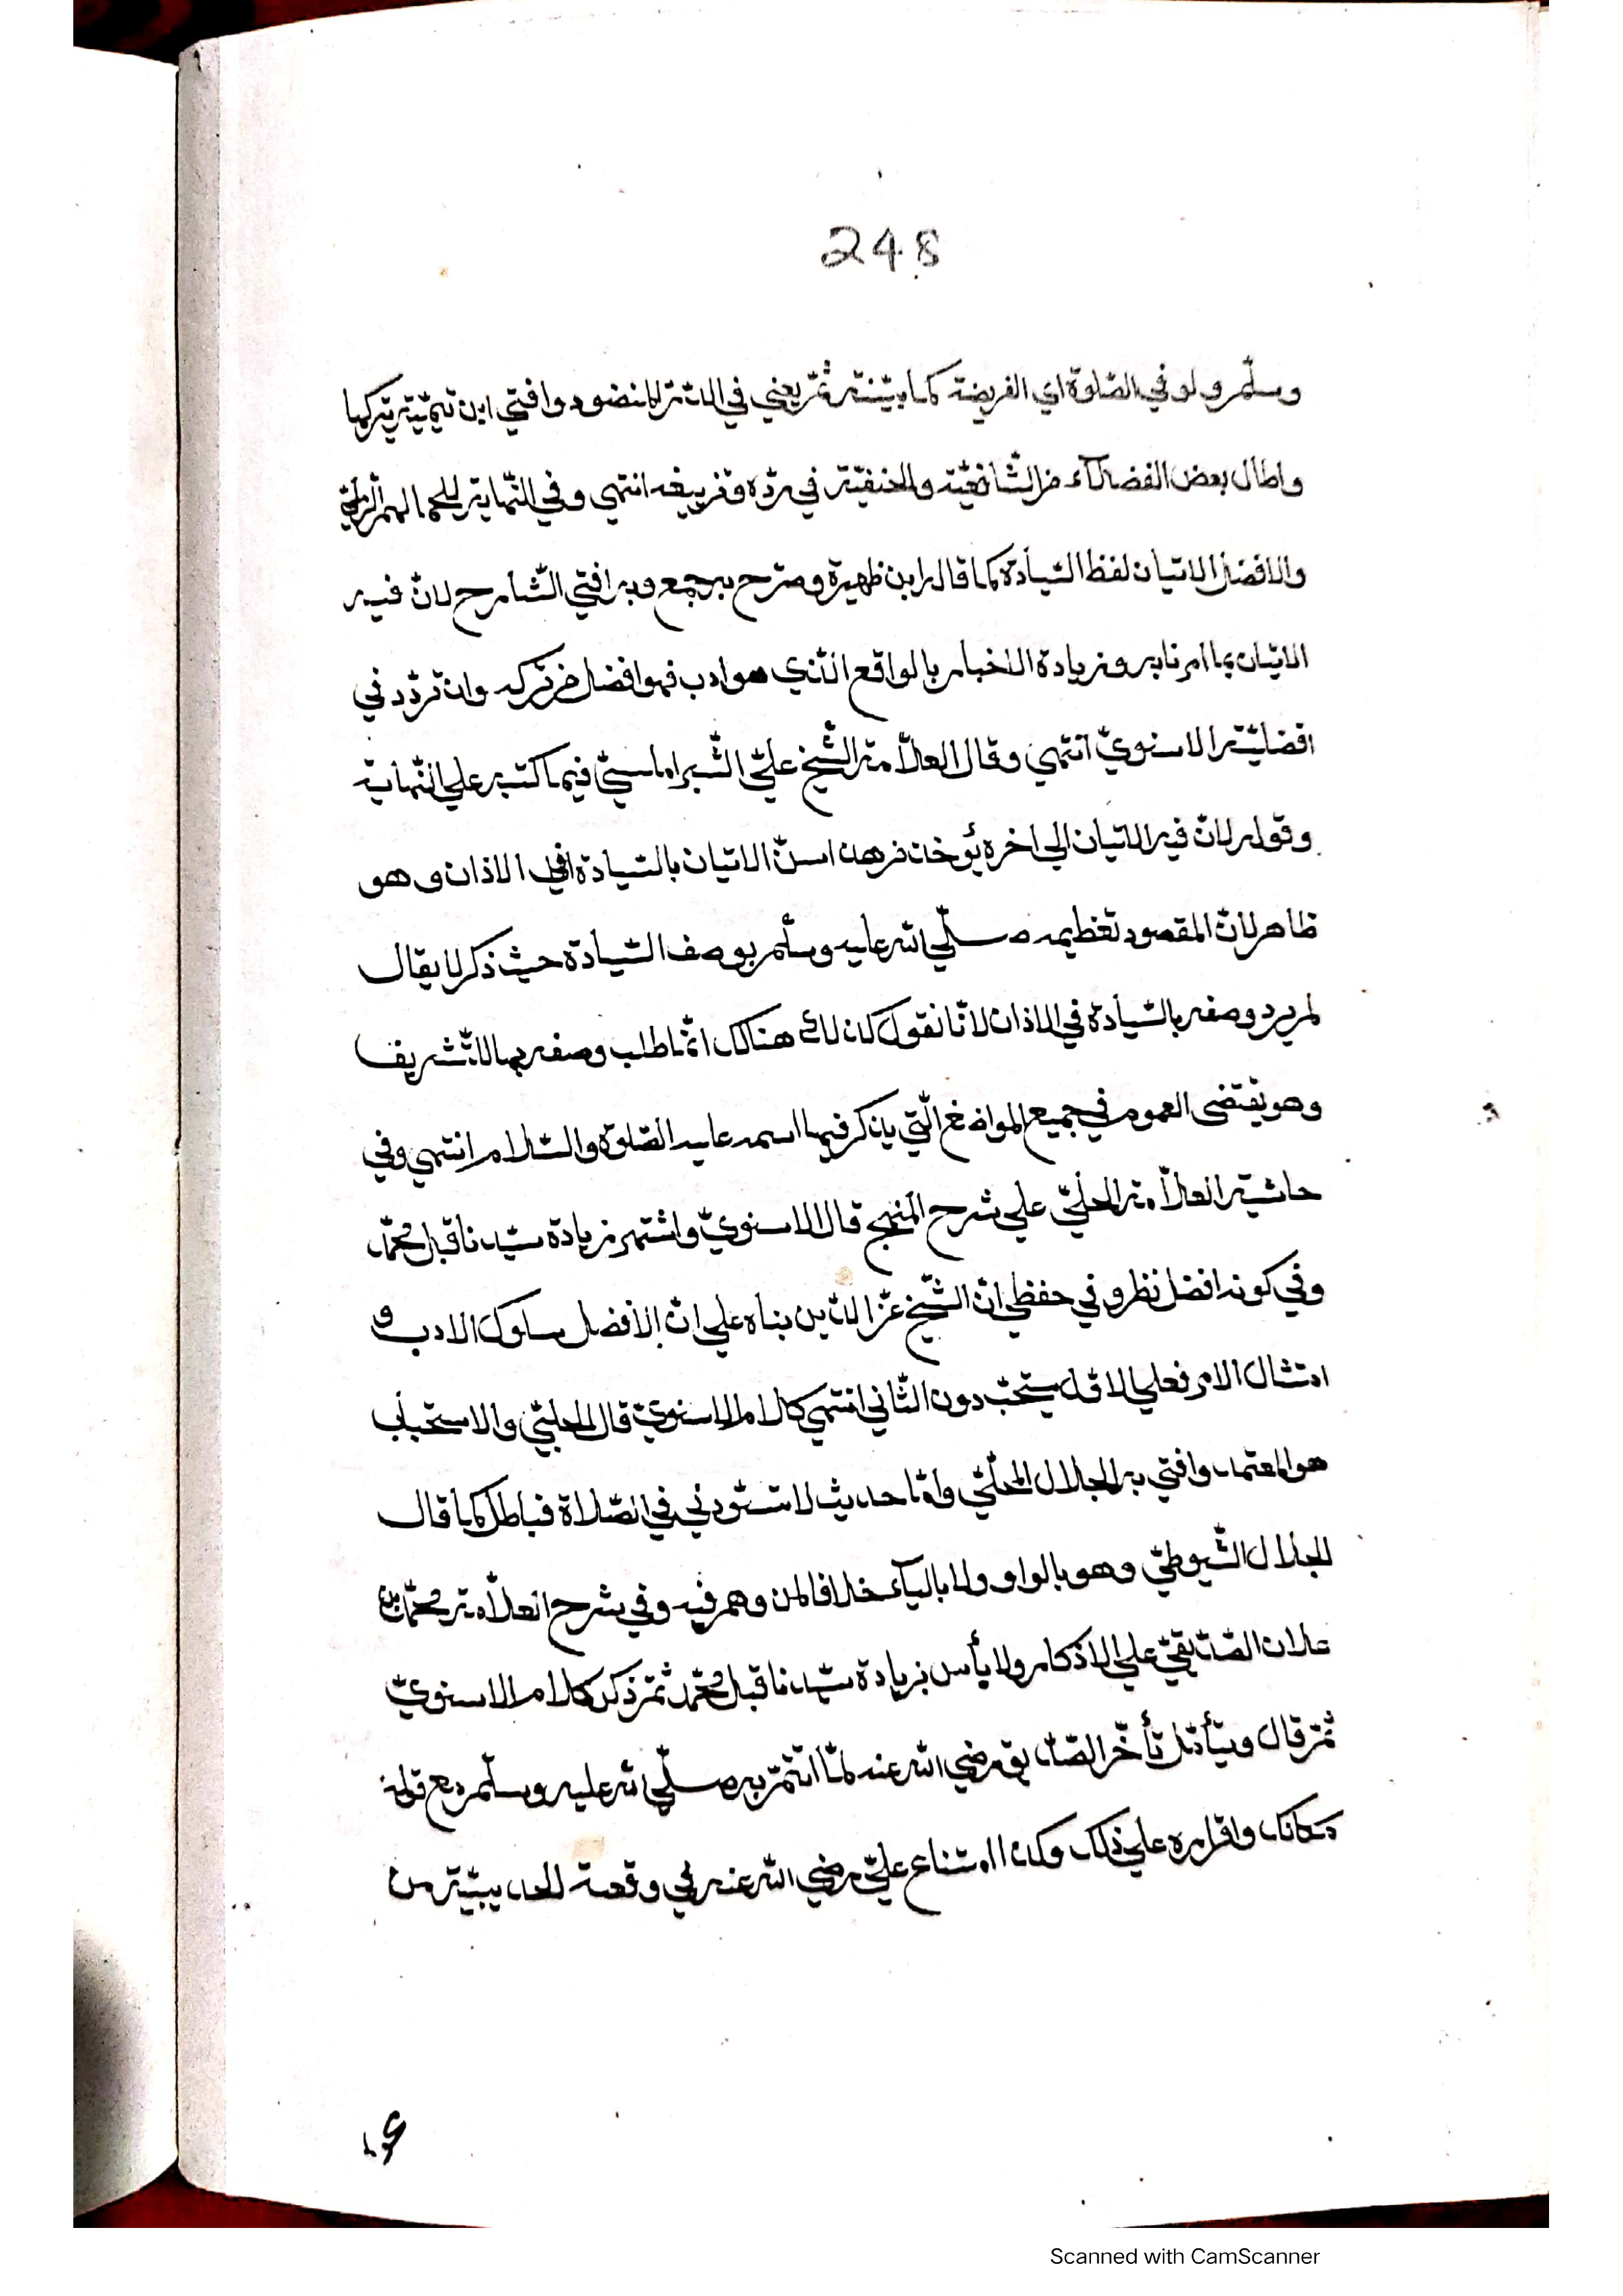 248
وسلّم ولو في الصّلوة اي الفريضة كما بيّنته ثمّ يعني في الدّرّ المنضود وافتي ابن تيميّة بتركها
واطال بعض الفضلآء من الشّافعيّة والحنفيّة في ردّه وتزييفه انتهي وفي النّهاية للجمال الرّمليّ
والافضل الاتيان لفظ السّيادة كما قاله ابن ظهيرة وصرّح به جمع وبه افتي الشّارح لانّ فيه
الاتيان بما امرنا به وزيادة الاخبار بالواقع الّذي هو ادب فهو افضل من تركه وان تردّد في
افضليّته الاسنويّ انتهي وقال العلاّمة الشّيخ عليّ الشّبراملسيّ فيما كتبه علي النّهاية
وقوله لانّ فيه الاتيان الي اخره يؤخذ من هذا سنّ الاتيان بالسّيادة في الاذان وهو
ظاهر لانّ المقصود تعظيمه صلّي الله عليه وسلّم بوصف السّيادة حيث ذكر لا يقال
لم يرد وصفه بالسّيادة في الاذان لانّا نقول كذلك هنا انّما طلب وصفه بها للتّشريف
وهو يقتضى العموم في جميع المواضع الّتي يذكر فيها اسمه عليه الصّلوة والسّلام انتهي وفي
حاشية العلاّمة الحلبيّ علي شرح المنهج قال الاسنويّ واشتهر زيادة سيّدنا قبل محمّد
وفي كونه افضل نظر وفي حفظي انّ الشّيخ عزّ الدّين بناه علي انّ الأفضل سلوك الادب و
امتثال الامر فعلي الاوّل يستحبّ دون الثّاني انتهي كلام الاسنويّ قال الحلبيّ والاستحباب
هو المعتمد وافتي به الجلال المحلّيّ وأمّا حديث لا تسوّدني في الصّلاة فباطل كما قال
الجلال السّيوطيّ وهو بالواو ولا بالياء خلافا لمن وهم فيه وفي شرح العلاّمة محمّد بن
علان الصّدّيقيّ علي الاذكار ولا بأس بزيادة سيّدنا قبل محمّد ثمّ ذكر كلام الاسنويّ
ثمّ قال ويتأمّل تأخّر الصّدّيق رضي الله عنه لمّا ائتمّ به صلّي الله عليه وسلّم مع قوله
مكانك واقراره علي ذلك وكذا امتناع عليّ رضي الله عنه في وقعة الحديبيّة من